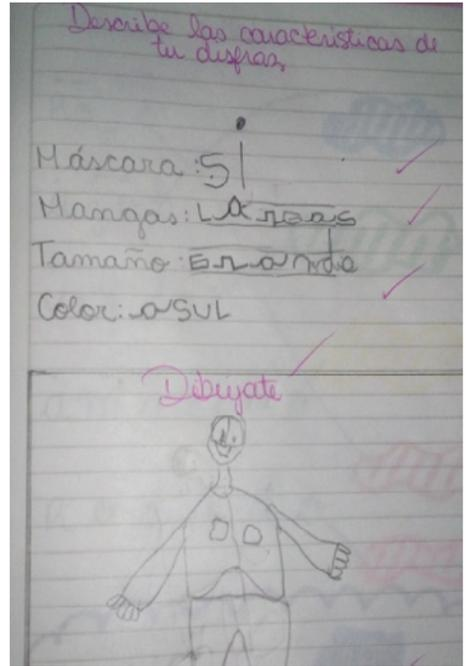 Describe las características de
tu disfraz
Máscara: SI
Mangas: LArgas
Tamaño: Grande
Color: aSUL
Dibujate